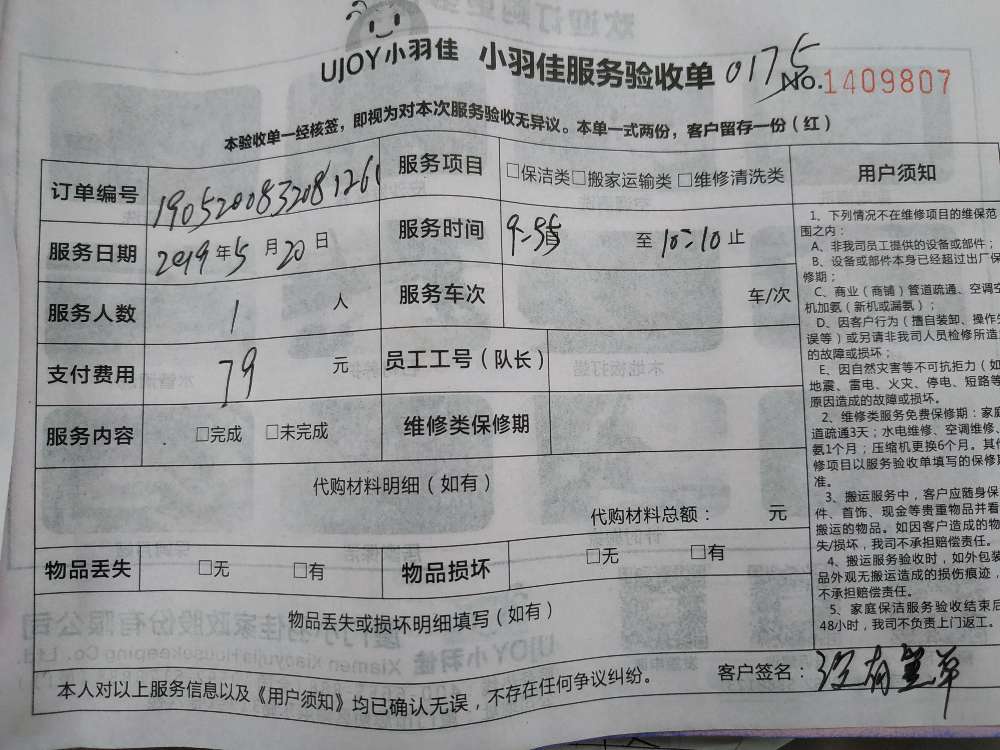 UJOY小羽佳 小羽佳服务验收单 0175 No.1409807
本验收单一经核签，即视为对本次服务验收无异议。本单一式两份，客户留存一份（红）
订单编号 服务项目 □保洁类□搬家运输类 □维修清洗类
服务日期 2019年5月20日 服务时间 至10:10止
服务人数 1 人 服务车次 车/次
支付费用 79 元 员工工号（队长）
服务内容 □完成 □未完成 维修类保修期
代购材料明细（如有）
代购材料总额： 元
物品丢失 □无 □有 物品损坏 □无 □有
物品丢失或损坏明细填写（如有）
本人对以上服务信息以及《用户须知》均已确认无误，不存在任何争议纠纷。 客户签名：
用户须知
1、下列情况不在维修项目的维保范
围之内：
A、非我司员工提供的设备或部件；
B、设备或部件本身已经超过出厂保
修期；
C、商业（商铺）管道疏通、空调空
机加氨（新机或漏氨）；
D、因客户行为（擅自装卸、操作失
误等）或另请非我司人员检修所造
的故障或损坏；
E、因自然灾害等不可抗拒力（如
地震、雷电、火灾、停电、短路等
原因造成的故障或损坏。
2、维修类服务免费保修期：家庭
道疏通3天；水电维修、空调维修、
氨1个月；压缩机更换6个月。其他
修项目以服务验收单填写的保修期
准。
3、搬运服务中，客户应随身保
件、首饰、现金等贵重物品并看
搬运的物品。如因客户造成的物
失/损坏，我司不承担赔偿责任。
4、搬运服务验收时，如外包装
品外观无搬运造成的损伤痕迹，
不承担赔偿责任。
5、家庭保洁服务验收结束后
48小时，我司不负责上门返工。